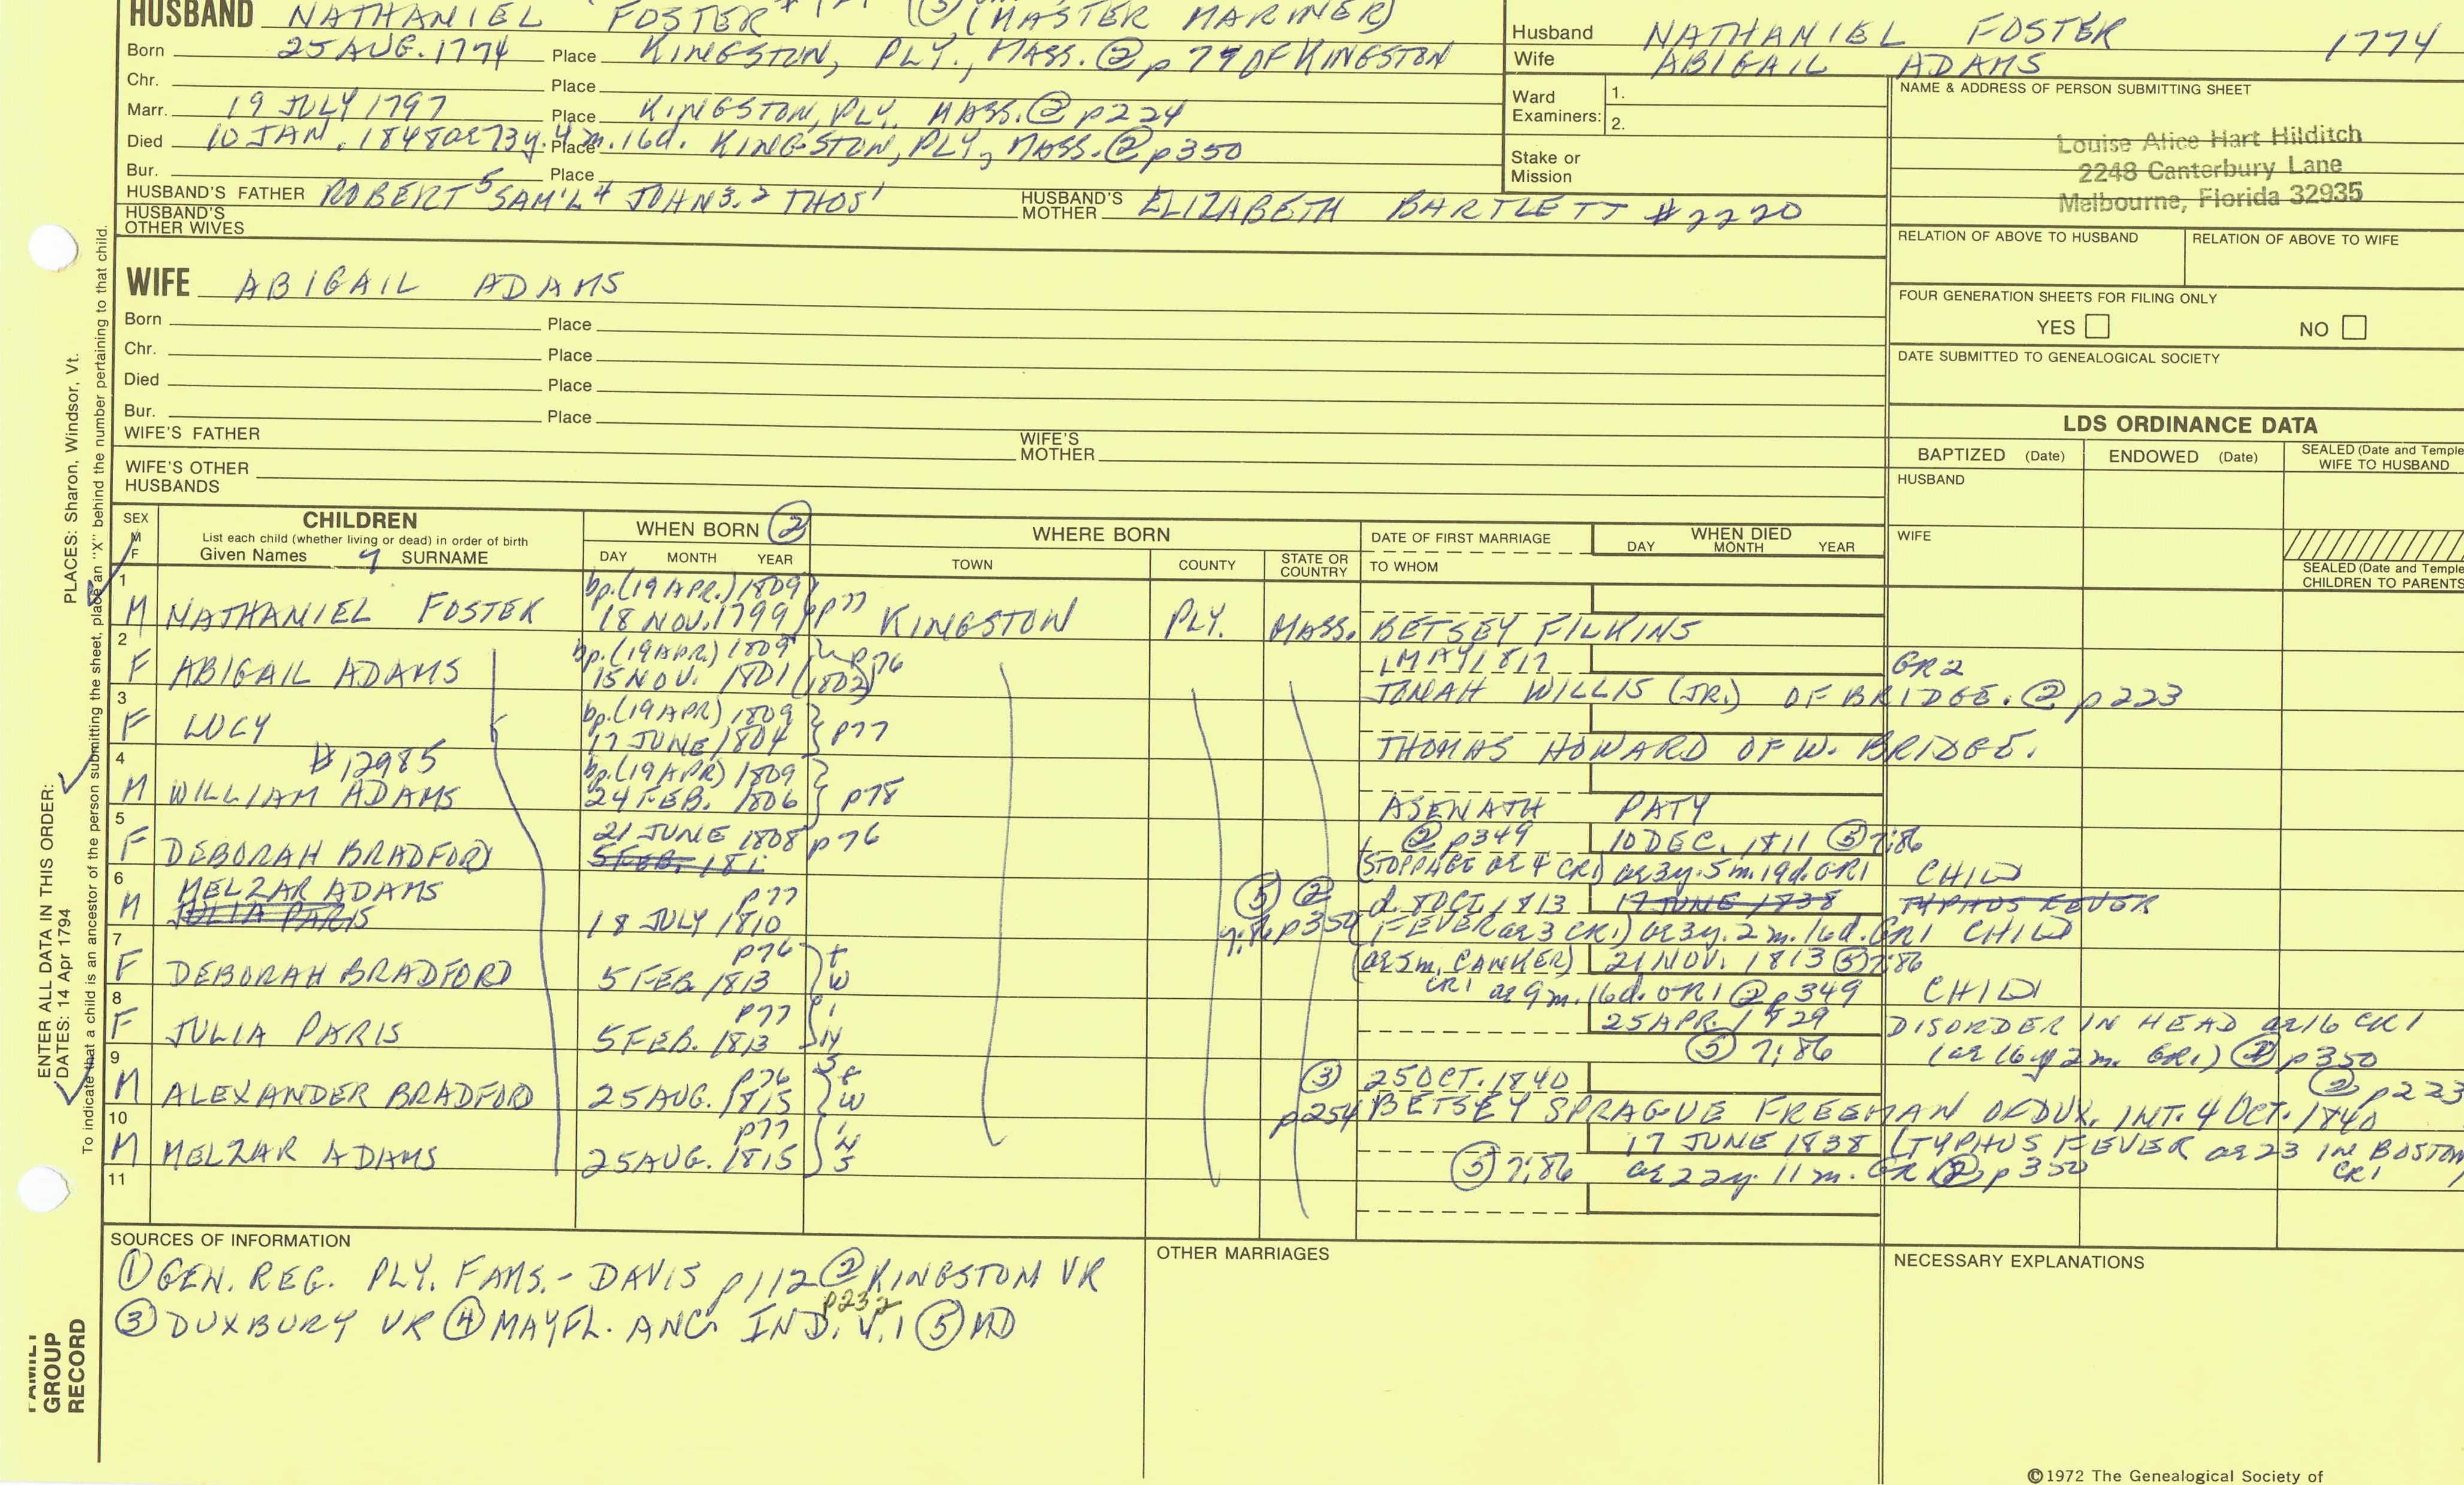 HUSBAND NATHANIEL FOSTER (MASTER MARINER)
Born 25 AUG. 1774 Place KINGSTON, PLY., MASS. ② p 79 OF KINGSTON
Chr. Place
Marr. 19 JULY 1797 Place KINGSTON, PLY. MASS. ② p224
Died 10 JAN. 1848 ae 73y. 4 m. 16d. Place KINGSTON, PLY, MASS. ② p350
Bur. Place
HUSBAND'S FATHER ROBERT⁵ SAM'L⁴ JOHN³·² THOS¹ HUSBAND'S MOTHER ELIZABETH BARTLETT #2220
HUSBAND'S OTHER WIVES
Husband NATHANIEL FOSTER 1774
Wife ABIGAIL ADAMS
Ward Examiners: 1.
2.
Stake or Mission
NAME & ADDRESS OF PERSON SUBMITTING SHEET
Louise Alice Hart Hilditch
2248 Canterbury Lane
Melbourne, Florida 32935
RELATION OF ABOVE TO HUSBAND RELATION OF ABOVE TO WIFE
FOUR GENERATION SHEETS FOR FILING ONLY
YES NO
DATE SUBMITTED TO GENEALOGICAL SOCIETY
WIFE ABIGAIL ADAMS
Born Place
Chr. Place
Died Place
Bur. Place
WIFE'S FATHER WIFE'S MOTHER
WIFE'S OTHER HUSBANDS
LDS ORDINANCE DATA
BAPTIZED (Date) ENDOWED (Date) SEALED (Date and Temple
WIFE TO HUSBAND
HUSBAND
WIFE
SEALED (Date and Temple
CHILDREN TO PARENTS
SEX M F
CHILDREN
List each child (whether living or dead) in order of birth
Given Names SURNAME
WHEN BORN ②
DAY MONTH YEAR
WHERE BORN
TOWN COUNTY STATE OR COUNTRY
DATE OF FIRST MARRIAGE
TO WHOM
WHEN DIED
DAY MONTH YEAR
1 bp. (19 APR.) 1809
M NATHANIEL FOSTER 18 NOV. 1799 p77 KINGSTON PLY. MASS. BETSEY FILKINS
2 bp. (19 APR.) 1809 p76 1 MAY 1817 GR2
F ABIGAIL ADAMS 15 NOV. 1801 (1802) JONAH WILLIS (JR.) OF BRIDGE. ② p223
3 bp. (19 APR) 1809
F LUCY 17 JUNE 1804 p77 THOMAS HOWARD OF W. BRIDGE.
4 #12985 bp. (19 APR) 1809
M WILLIAM ADAMS 24 FEB. 1806 p78 ASENATH PATY
5 21 JUNE 1808 p76 ② p349 10 DEC. 1811 ⑤ 7:86
F DEBORAH BRADFORD 5 FEB. 181 (STOPPAGE ae 4 CR1) ae 3y. 5m. 19d. GR1 CHILD
6 MELZAR ADAMS p77 ⑤ ② d. 8 OCT. 1813 17 JUNE 1838 TYPHUS FEVER
M JULIA PARIS 18 JULY 1810 7:86 p350 (FEVER ae 3 CR1) ae 3y. 2 m. 16d. GR1 CHILD
7 p76 (ae 5m. CANKER) 21 NOV. 1813 ⑤ 7:86
F DEBORAH BRADFORD 5 FEB. 1813 CR1 ae 9m. 16d. GR1 ② p349 CHILD
8 p77 25 APR. 1829 DISORDER IN HEAD ae 16 CR1
F JULIA PARIS 5 FEB. 1813 ⑤ 7:86 (ae 16y 2 m. GR1) ② p350
9 p76 ③ 25 OCT. 1840 ② p223
M ALEXANDER BRADFORD 25 AUG. 1815 p254 BETSEY SPRAGUE FREEMAN OF DUX. INT. 4 OCT. 1840
10 p77 17 JUNE 1838 (TYPHUS FEVER ae 23 IN BOSTON
M MELZAR ADAMS 25 AUG. 1815 ⑤ 7:86 ae 22y. 11 m. GR1 ② p350 CR1
11
SOURCES OF INFORMATION
① GEN. REG. PLY. FAMS. - DAVIS p112 ② KINGSTON VR
p232
③ DUXBURY VR ④ MAYFL. ANC. IND. V.1 ⑤ MD
OTHER MARRIAGES
NECESSARY EXPLANATIONS
©1972 The Genealogical Society of
ENTER ALL DATA IN THIS ORDER:
DATES: 14 Apr 1794
PLACES: Sharon, Windsor, Vt.
To indicate that a child is an ancestor of the person submitting the sheet, place an "X" behind the number pertaining to that child.
FAMILY
GROUP
RECORD